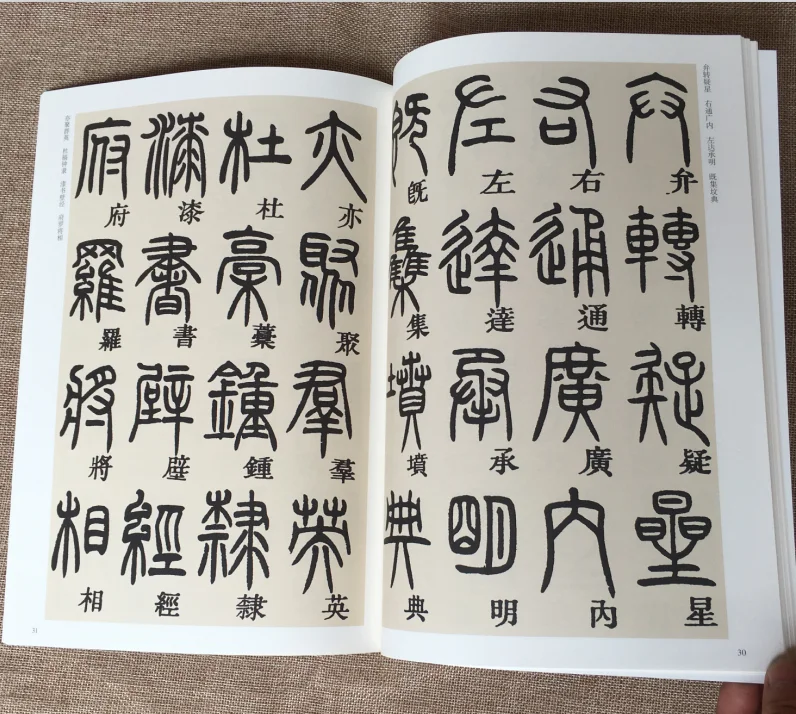 弁转疑星 右通广内 左达承明 既集坟典
弁轉疑星
右通廣内
左達承明
既集墳典
30
亦聚羣英
杜藁鍾隸
漆書壁經
府羅將相
亦聚群英 杜稿钟隶 漆书壁经 府罗将相
31